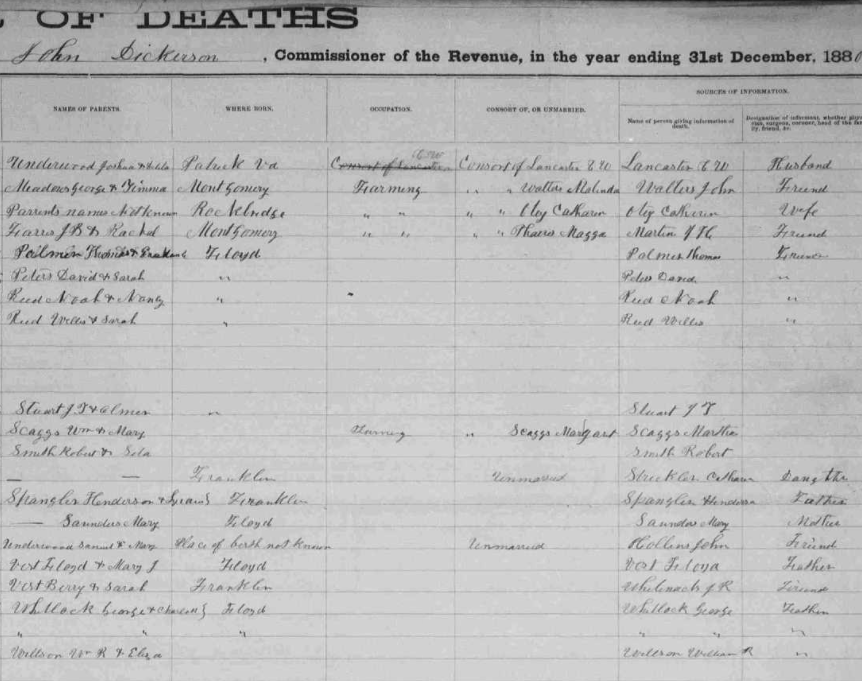 OF DEATHS
John Dickerson, Commissioner of the Revenue, in the year ending 31st December, 188
SOURCES OF INFORMATION.
NAMES OF PARENTS. WHERE BORN. OCCUPATION. CONSORT OF, OR UNMARRIED. Name of person giving information of death. Designation of informant, whether
Underwood Joshua & Patrick Va Consort of Lancaster Consort of Lancaster Lancaster Husband
Meadows George & Montgomery Farming " " Walters Malinda Walters John Friend
Parrents names Not Known Rockbridge " " " " Otey Catharin Otey Catharin Wife
J B & Rachel Montgomery " " " " Magga Martin Friend
Palmer Thomas & Floyd Palmer Thomas Friend
Peters David & Sarah " Peters David "
Reed Noah & Nancy " " Reed Noah "
Reed Willis & Sarah " Reed Willis "
Stuart J T & " Stuart J T
Scaggs Wm & Mary Farming " Scaggs Margaret Scaggs Martha
Smith Robert & Smith Robert
— — Franklin Unmarried Strickler Catharin
Spangler Henderson & Franklin Spangler Henderson Father
— Saunders Mary Floyd Saunders Mary Mother
Underwood Samuel & Mary Place of berth not known Unmarried Hollins John Friend
Vest Floyd & Mary J Floyd Vest Floyd Feather
Vest Berry & Sarah Franklin J R Friend
Whitlock George & Floyd Whitlock George Feather
" " " " " "
Willson Wm R & Eliza Willson William R "